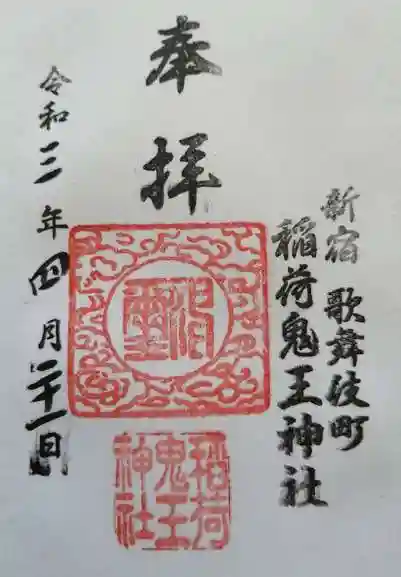 奉拝
新宿 歌舞伎町
稲荷鬼王神社
令和三年四月二十一日
稲荷
鬼王
神社